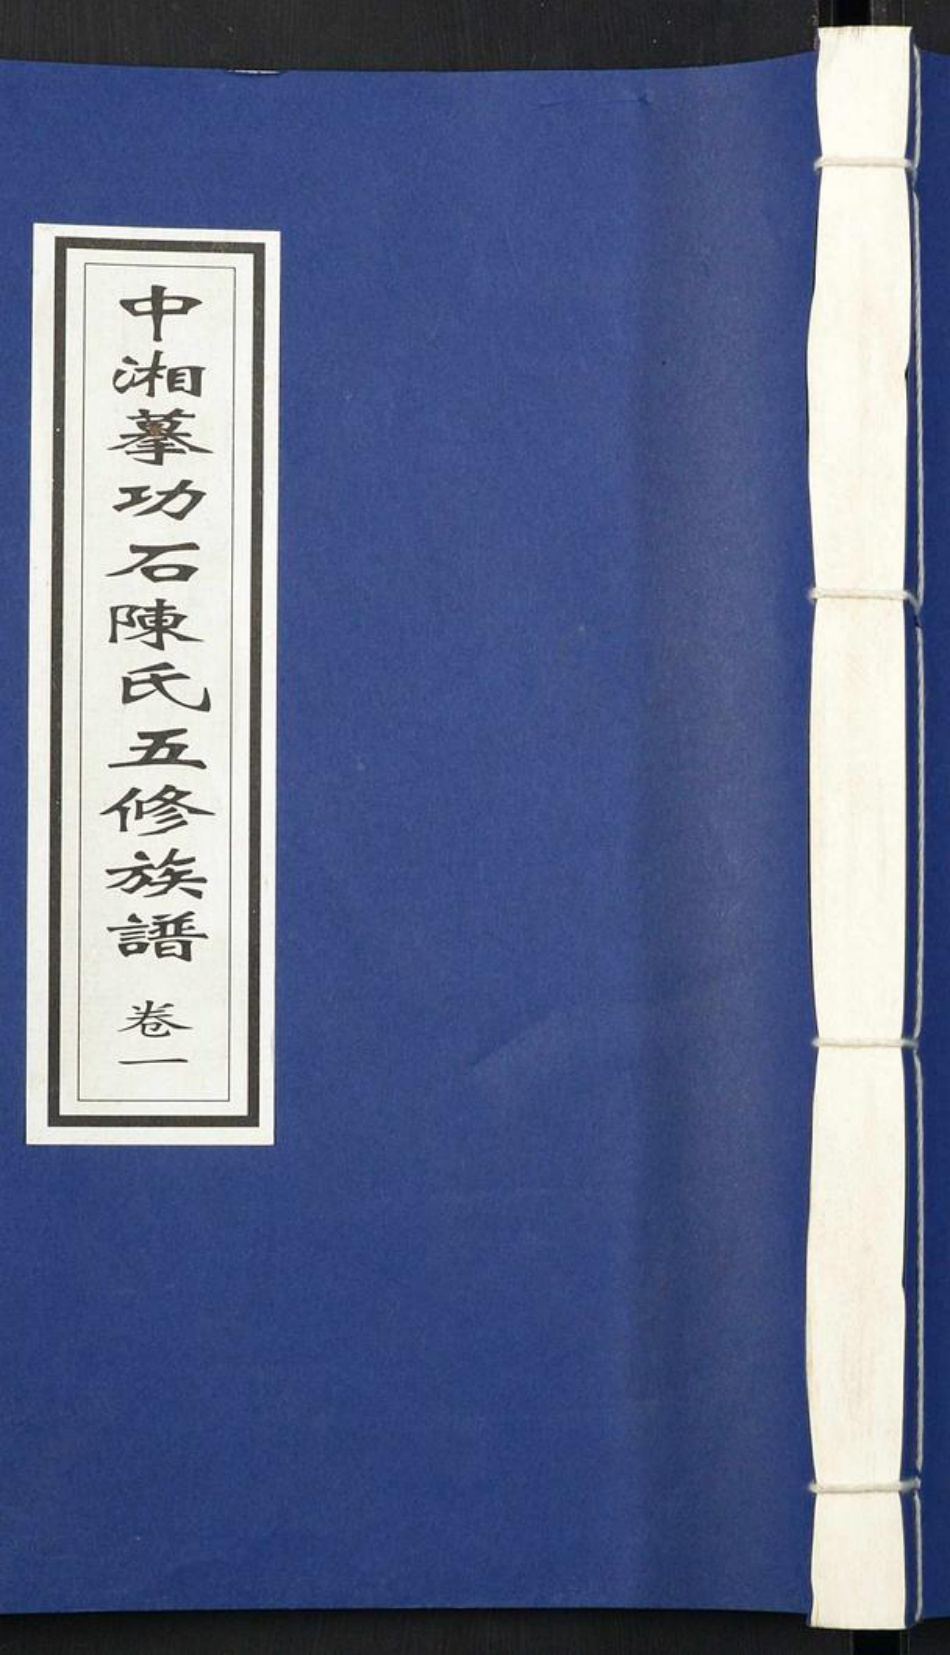 中湘摹功石陳氏五修族譜 卷一